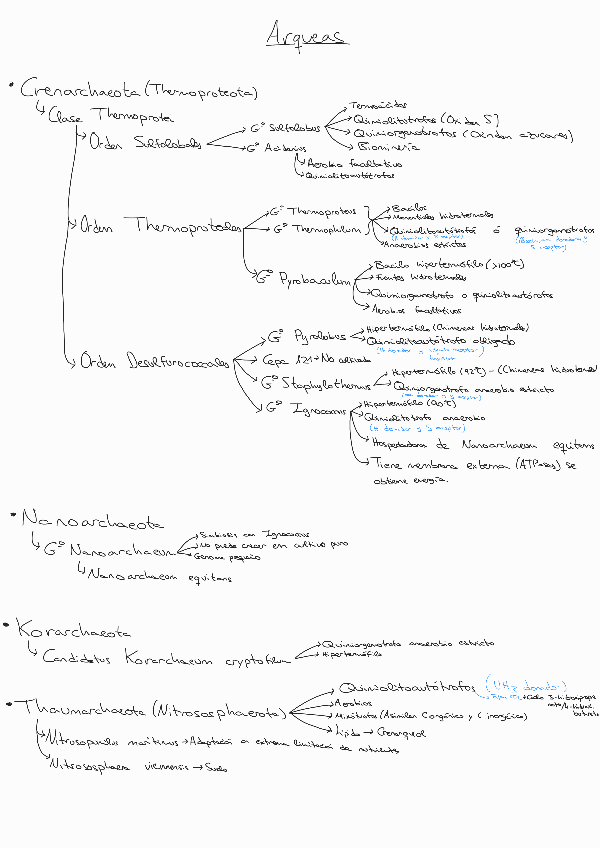 Arqueas
• Crenarchaeota (Thermoproteota)
Clase Thermoprota
Orden Sulfolobales
G° Sulfolobus
Termoácidos
Quimiolitotrofos (Oxidan S)
Quimiorganotrofos (Oxidan azúcares)
Biominería
G° Acidianus
Aerobio facultativo
Quimiolitoautótrofos
Orden Thermoproteales
G° Thermoproteus
G° Thermophilum
Bacilos
Manantiales hidrotermales
Quimiolitoautótrofos ó quimiorganotrofos
Anaerobios estrictos
G° Pyrobaculum
Bacilo hipertermófilo (>100°C)
Fuentes hidrotermales
Quimiorganotrofo o quimiolitoautótrofos
Aerobios facultativos
Orden Desulfurococcales
G° Pyrolobus
Hipertermófilo (Chimeneas hidrotermales)
Quimiolitoautótrofo obligado
Cepa 121 → No cultivada
G° Staphylothermus
Hipertermófilo (92°C) - (Chimeneas hidrotermales)
Quimiorganotrofo anaerobio estricto
G° Ignococcus
Hipertermófilo (90°C)
Quimiolitotrofo anaerobio
(H donador y S aceptor)
Hospedadora de Nanoarchaeum equitans
Tiene membrana externa (ATPasas) se
obtiene energía.
• Nanoarchaeota
G° Nanoarchaeum
Simbiosis con Ignococcus
No puede crecer en cultivo puro
Genoma pequeño
Nanoarchaeum equitans
• Korarchaeota
Candidatus Korarchaeum cryptofilum
Quimiorganotrofo anaerobio estricto
Hipertermófilo
• Thaumarchaeota (Nitrososphaerota)
Quimiolitoautótrofos (NH3 donador)
Aerobios
Mixótrofo (Asimilan C orgánico y C inorgánico)
Lípido → Crenarqueol
Nitrosopumilus maritimus → Adaptada a extrema limitación de nutrientes
Nitrososphaera viennensis → Suelo